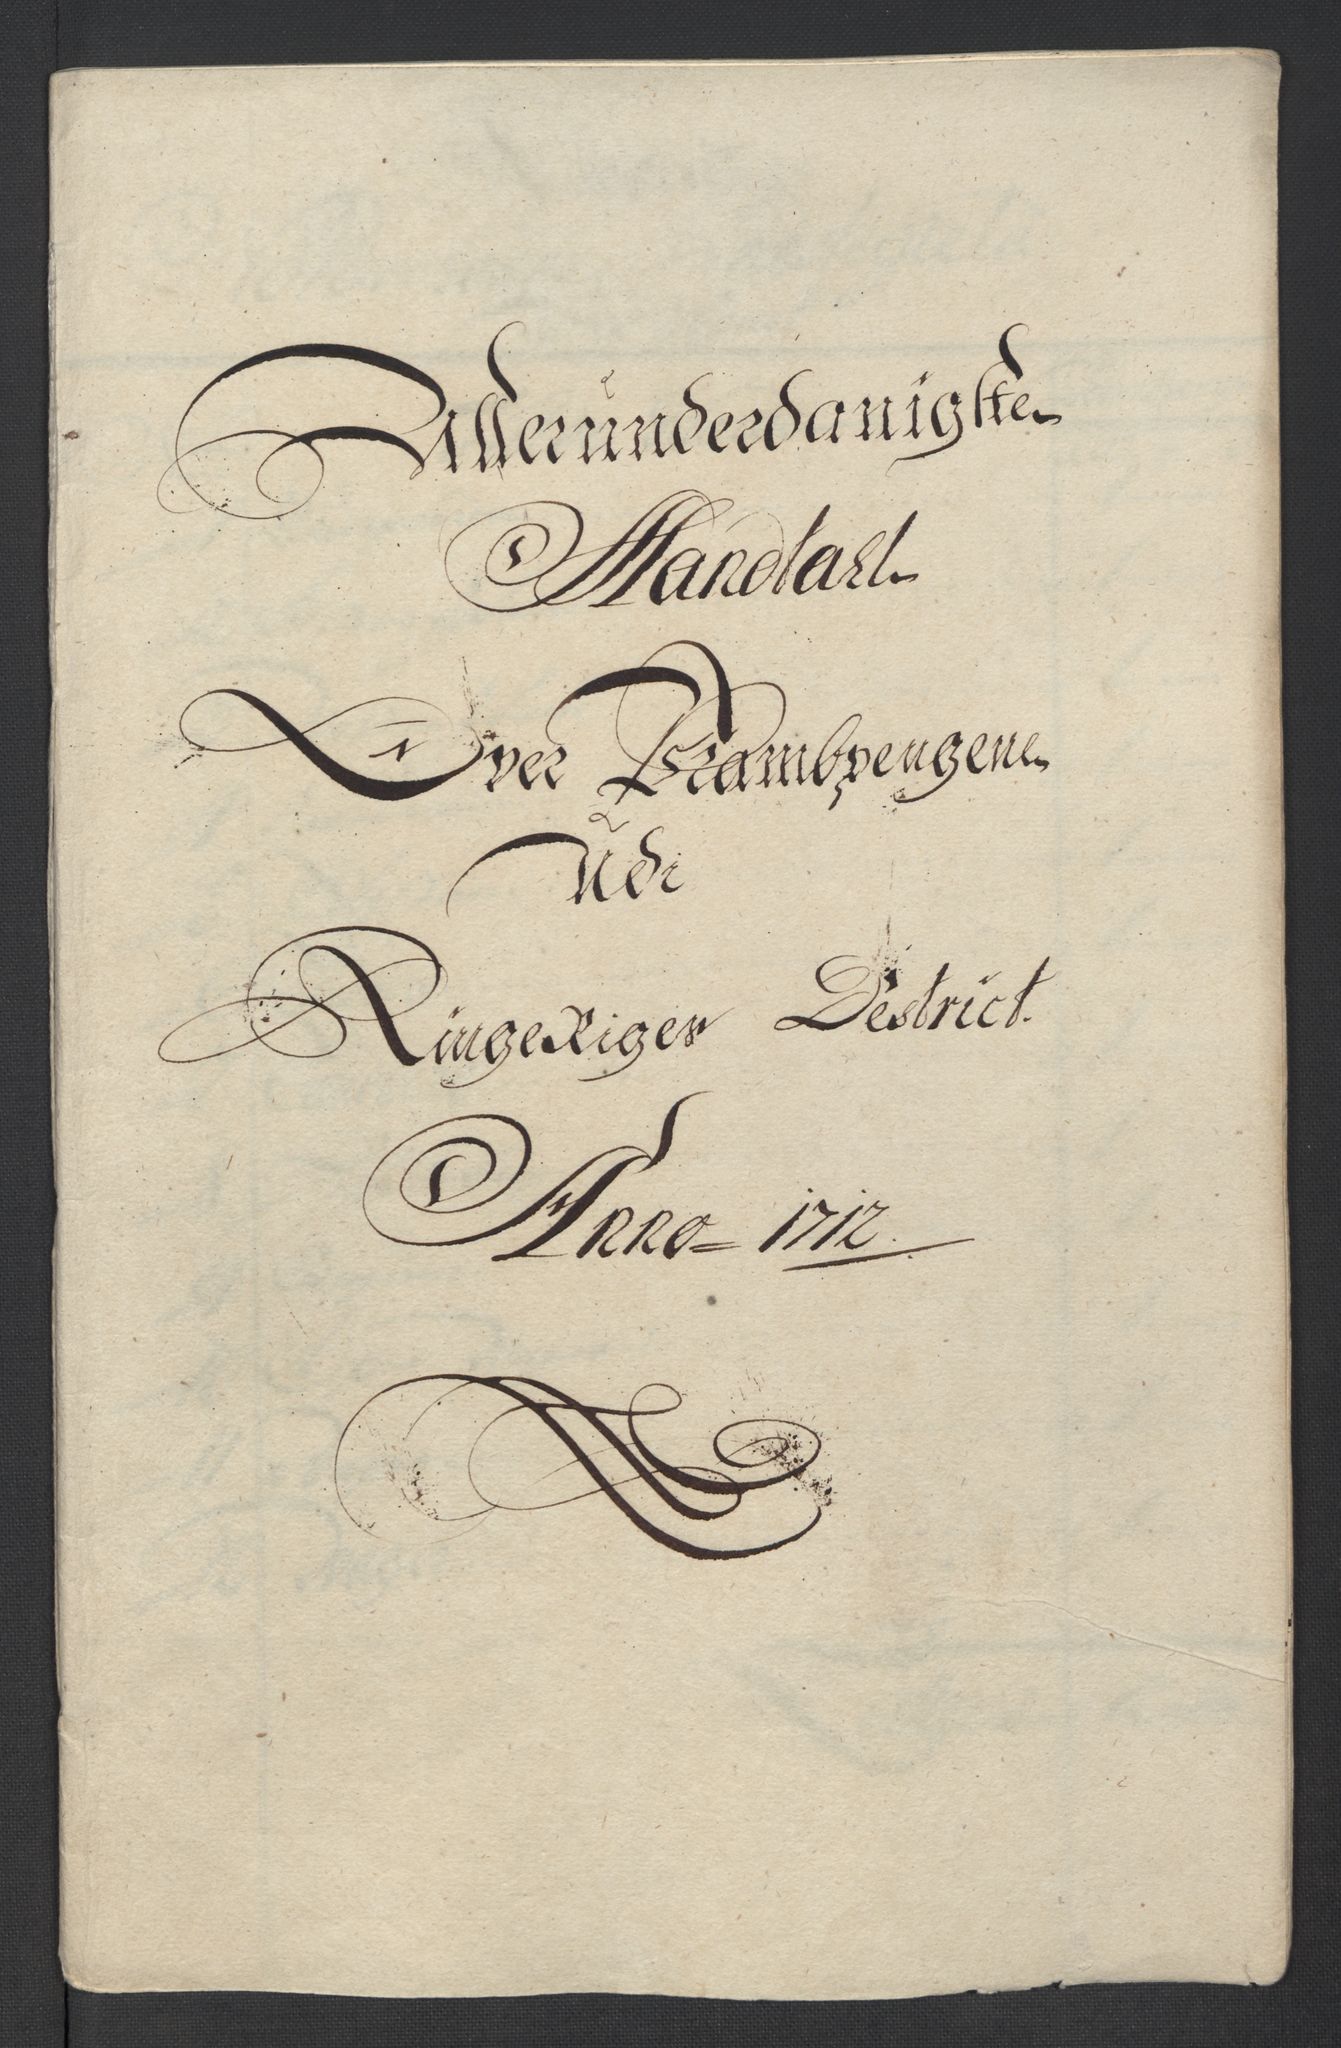 Allerunderdanigste
Mandtahl
Over Krambpengene
Udi
Ringeriges Destrict.
Anno = 1712.